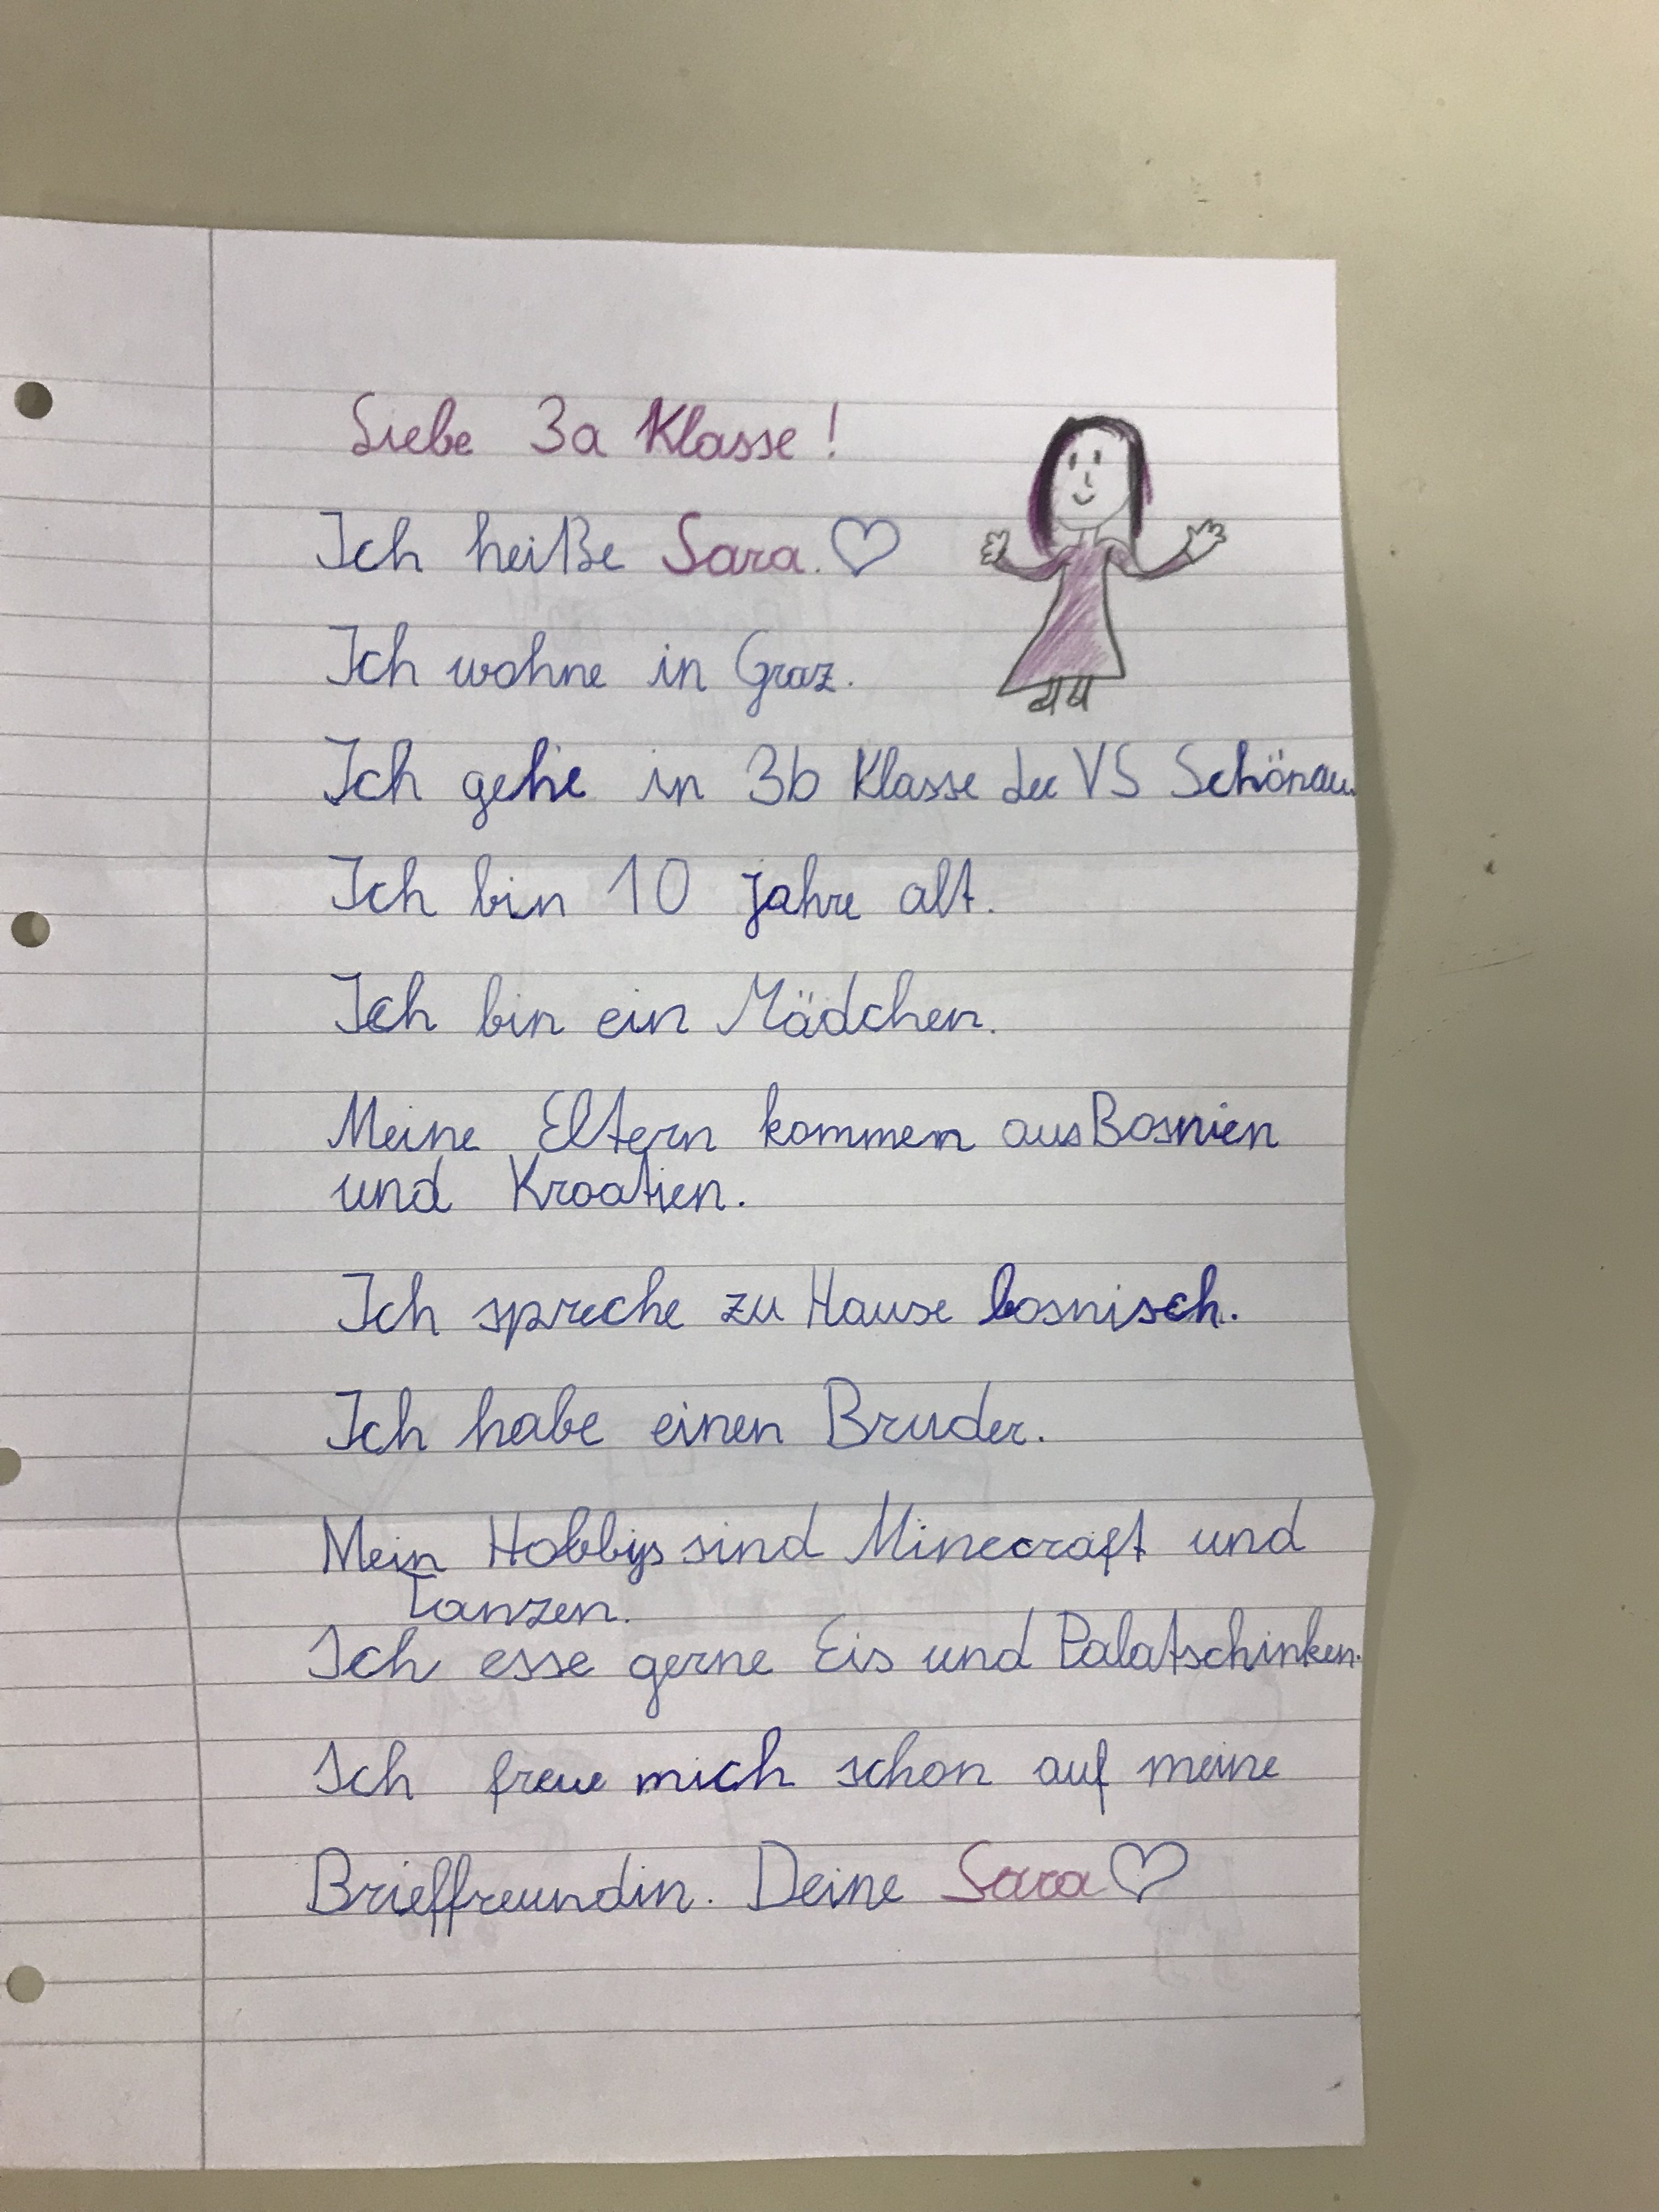 Liebe 3a Klasse!
Ich heiße Sara. ♡
Ich wohne in Graz.
Ich gehe in 3b Klasse der VS Schönau.
Ich bin 10 Jahre alt.
Ich bin ein Mädchen.
Meine Eltern kommen aus Bosnien
und Kroatien.
Ich spreche zu Hause bosnisch.
Ich habe einen Bruder.
Mein Hobbys sind Minecraft und
Tanzen.
Ich esse gerne Eis und Palatschinken.
Ich freue mich schon auf meine
Brieffreundin. Deine Sara ♡